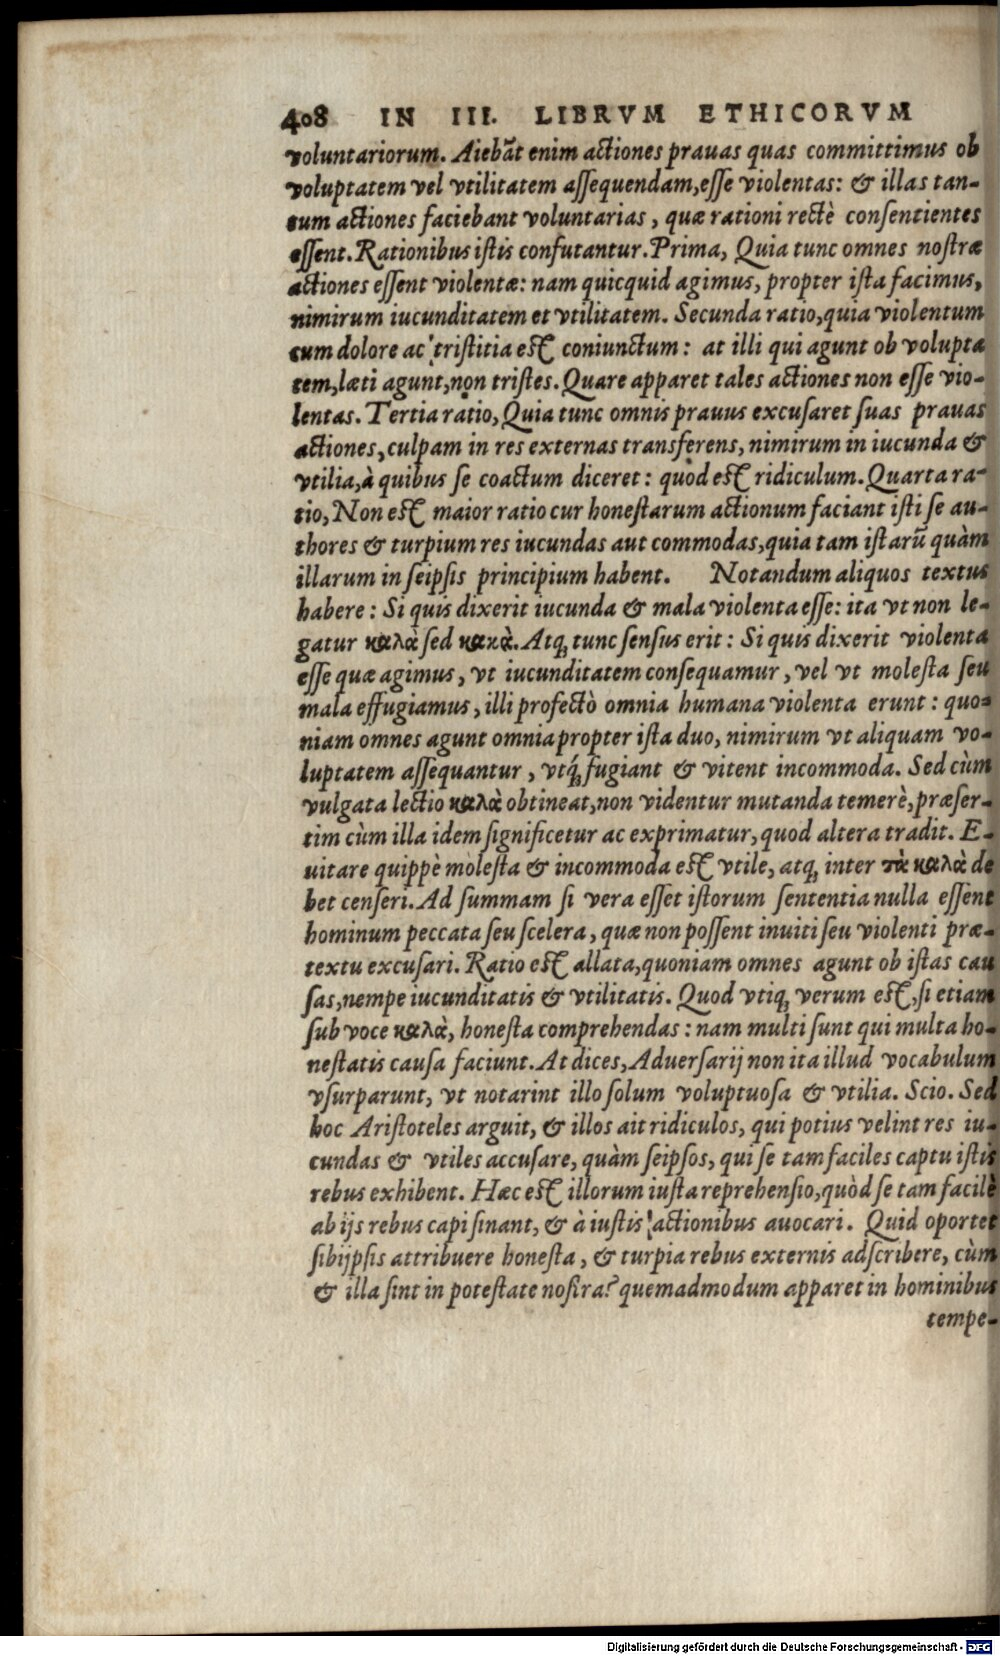 408 IN III. LIBRVM ETHICORVM
voluntariorum. Aiebāt enim actiones prauas quas committimus ob
voluptatem vel vtilitatem assequendam, esse violentas: & illas tan-
tum actiones faciebant voluntarias, quæ rationi rectè consentientes
essent. Rationibus istis confutantur. Prima, Quia tunc omnes nostræ
actiones essent violentæ: nam quicquid agimus, propter ista facimus,
nimirum iucunditatem et vtilitatem. Secunda ratio, quia violentum
cum dolore ac tristitia est coniunctum: at illi qui agunt ob volupta
tem, læti agunt, non tristes. Quare apparet tales actiones non esse vio-
lentas. Tertia ratio, Quia tunc omnis prauus excusaret suas prauas
actiones, culpam in res externas transferens, nimirum in iucunda &
vtilia, à quibus se coactum diceret: quod est ridiculum. Quarta ra-
tio, Non est maior ratio cur honestarum actionum faciant isti se au-
thores & turpium res iucundas aut commodas, quia tam istarū quàm
illarum in seipsis principium habent. Notandum aliquos textus
habere: Si quis dixerit iucunda & mala violenta esse: ita vt non le-
gatur καλὰ sed κακὰ. Atq; tunc sensus erit: Si quis dixerit violenta
esse quæ agimus, vt iucunditatem consequamur, vel vt molesta seu
mala effugiamus, illi profectò omnia humana violenta erunt: quo-
niam omnes agunt omnia propter ista duo, nimirum vt aliquam vo-
luptatem assequantur, vtq́; fugiant & vitent incommoda. Sed cùm
vulgata lectio καλὰ obtineat, non videntur mutanda temerè, præser-
tim cùm illa idem significetur ac exprimatur, quod altera tradit. E-
uitare quippè molesta & incommoda est vtile, atq; inter τὰ καλὰ de
bet censeri. Ad summam si vera esset istorum sententia nulla essent
hominum peccata seu scelera, quæ non possent inuiti seu violenti præ-
textu excusari. Ratio est allata, quoniam omnes agunt ob istas cau
sas, nempe iucunditatis & vtilitatis. Quod vtiq; verum est, si etiam
sub voce καλὰ, honesta comprehendas: nam multi sunt qui multa ho-
nestatis causa faciunt. At dices, Aduersarij non ita illud vocabulum
vsurparunt, vt notarint illo solum voluptuosa & vtilia. Scio. Sed
hoc Aristoteles arguit, & illos ait ridiculos, qui potius velint res iu-
cundas & vtiles accusare, quàm seipsos, qui se tam faciles captu istis
rebus exhibent. Hæc est illorum iusta reprehensio, quòd se tam facilè
ab ijs rebus capi sinant, & à iustis actionibus auocari. Quid oportet
sibijpsis attribuere honesta, & turpia rebus externis adscribere, cùm
& illa sint in potestate nostra? quemadmodum apparet in hominibus
tempe-
Digitalisierung gefördert durch die Deutsche Forschungsgemeinschaft - DFG